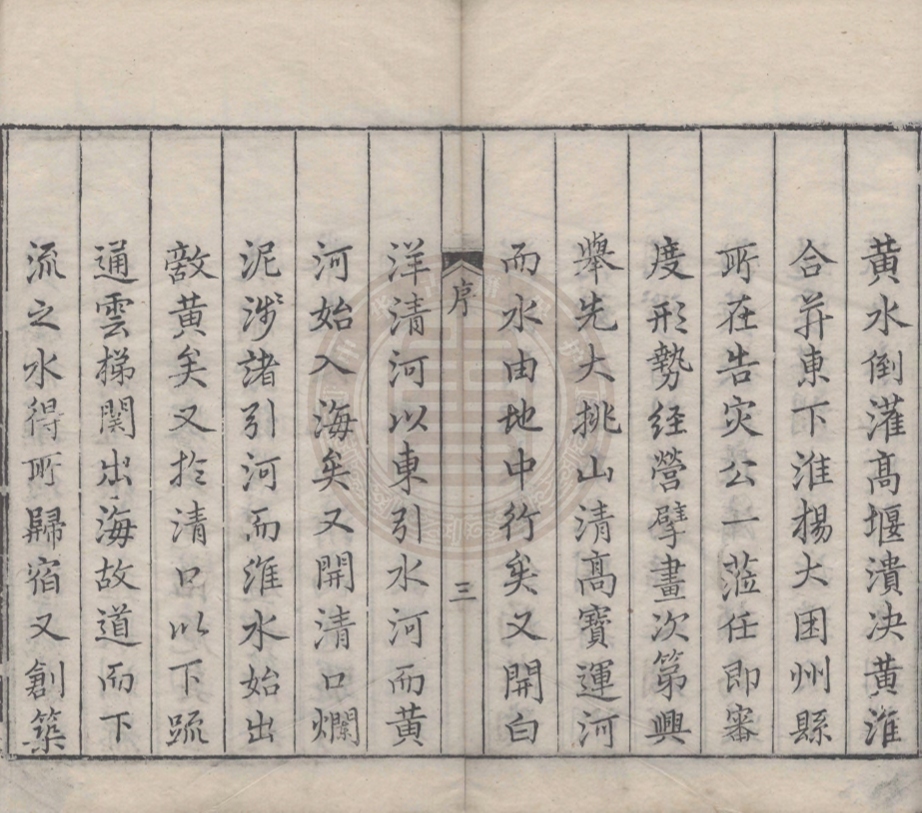 黃水倒灌髙堰潰决黃淮
合并東下淮揚大困州縣
所在告灾公一蒞任即審
度形勢经營擘畫次第興
舉先大挑山清髙寶運河
而水由地中行矣又開白
序
三
洋清河以東引水河而黃
河始入海矣又開清口爛
泥淺諸引河而淮水始出
敵黃矣又扵清口以下疏
通雲梯関出海故道而下
流之水得所歸宿又創築